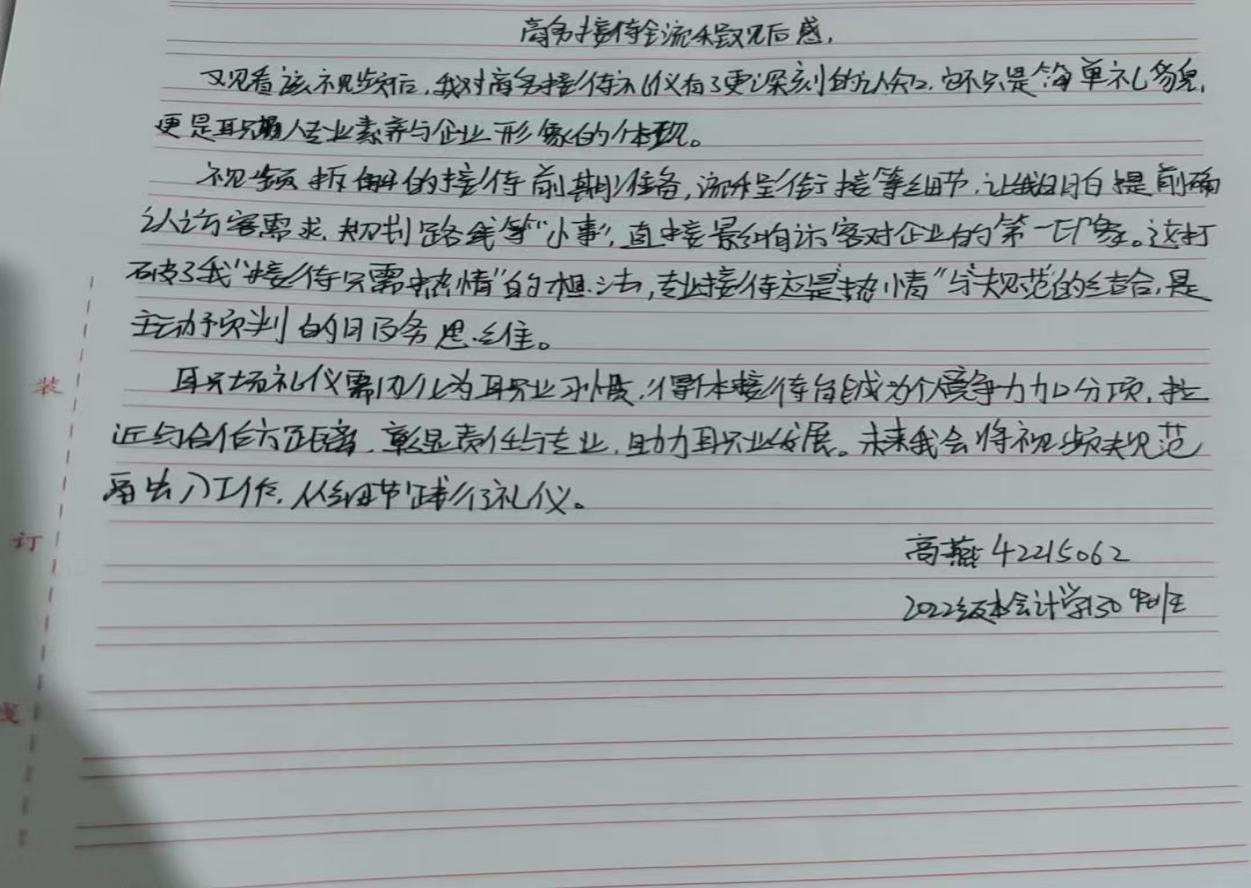 商务接待全流程观后感.
观看该视频后,我对商务接待礼仪有了更深刻的认知.它不只是简单礼貌,
更是职场人专业素养与企业形象的体现。
视频拆解的接待前期准备,流程衔接等细节,让我明白提前确
认访客需求、规划路线等“小事”,直接影响访客对企业的第一印象。这打
破了我“接待只需热情”的想法,专业接待应是“热情”与“规范”的结合,是
主动预判的服务思维。
职场礼仪需内化为职业习惯,得体接待能成为个人竞争力加分项,拉
近与合作方距离,彰显责任与专业,助力职业发展。未来我会将视频规范
融入工作,从细节践行礼仪。
高燕 42215062
2022级本会计学130
装
订
线